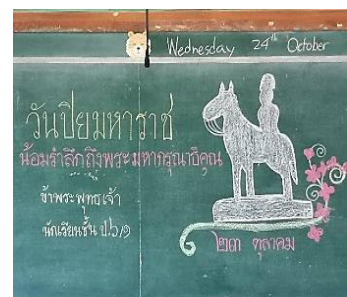 Wednesday 24th October
วันปิยมหาราช
น้อมรำลึกถึงพระมหากรุณาธิคุณ
ข้าพระพุทธเจ้า
นักเรียนชั้น ป.๖/๑
๒๓ ตุลาคม